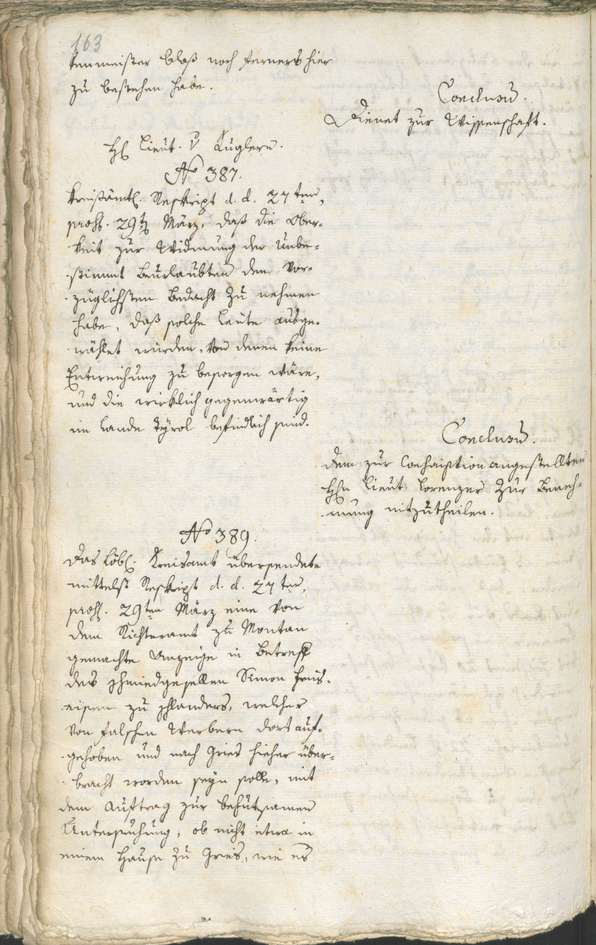 163
kenmeister blos noch ferners hier
zu bestehen habe.
Conclusum.
Dienet zur Wissenschaft.
H. Lieut. v Kuglern.
No 387.
Kreisämtl. Reskript d. d. 27ten,
prohs. 29t März, daß die Ober-
keit zur Widmung der Unbe-
stimmt Beurlaubten den vor-
züglichsten Bedacht zu nehmen
habe, daß solche Leute ausge-
wählet würden, von denen keine
Entweichung zu besorgen wäre,
und die wirklich gegenwärtig
im Lande Tyrol befindlich sind.
Conclusum.
dem zur Conscription angestellten
Hn Lieut. Lorenzer zur Beneh-
mung mitzutheilen.
No 389.
Das Löbl. Kreisamt übersendete
mittelst Reskript d. d. 27ten,
prohs. 29ten März eine von
dem Richteramt zu Montan
gemachte Anzeige in Betreff
des schmiedgesellen Simon
eisen zu schlanders, welcher
von falschen Werbern dort auf-
gehoben und nach Gries hieher über-
bracht worden seyn solle, mit
dem Auftrag zur behutsamen
Untersuchung, ob nicht etwa in
einem Hause zu Gries, wie es